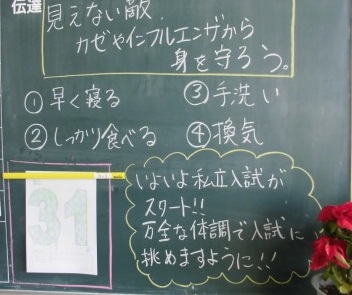 伝達
見えない敵、
カゼやインフルエンザから
身を守ろう。
①早く寝る
③手洗い
②しっかり食べる
④換気
31
いよいよ私立入試が
スタート!!
万全な体調で入試に
挑めますように!!